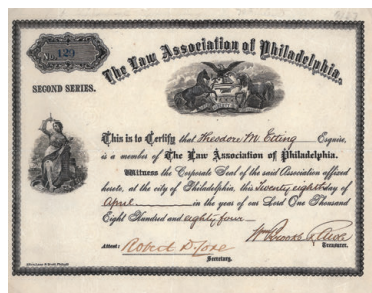 No. 129
The Law Association of Philadelphia.
SECOND SERIES.
This is to Certify that Theodore M. Etting Esquire,
is a member of The Law Association of Philadelphia.
Witness the Corporate Seal of the said Association affixed
hereto, at the city of Philadelphia, this Twenty eighth day of
April in the year of our Lord One Thousand
Eight Hundred and eighty four
Treasurer.
Attest: Robert D. Coxe
Secretary.